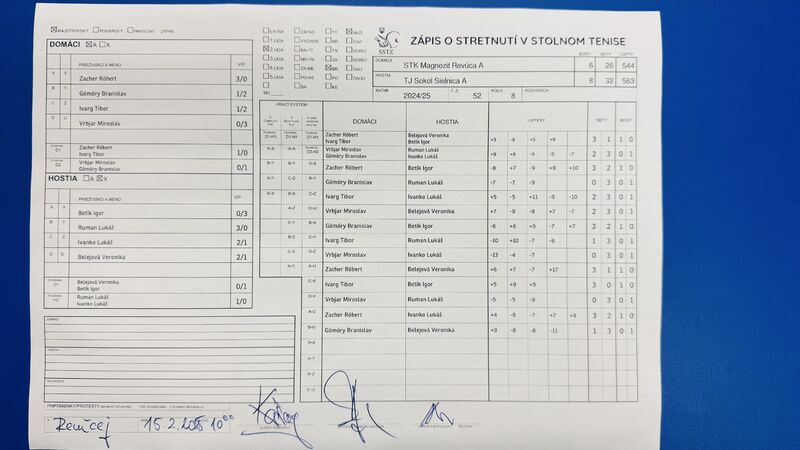 MAJSTROVSKÝ POHÁROVÝ PRIATEĽSKÝ ZÁPAS
DOMÁCI A X
PRIEZVISKO A MENO V/P
A X Zacher Róbert 3/0
B Y Gömöry Branislav 1/2
C Z Ivarg Tibor 1/2
D U Vrbjar Miroslav 0/3
D1 Zacher Róbert
Ivarg Tibor 1/0
D2 Vrbjar Miroslav
Gömöry Branislav 0/1
HOSTIA A X
PRIEZVISKO A MENO V/P
A X Betík Igor 0/3
B Y Ruman Lukáš 3/0
C Z Ivanko Lukáš 2/1
D U Belejová Veronika 2/1
D1 Belejová Veronika
Betík Igor 0/1
Ruman Lukáš
Ivanko Lukáš 1/0
DOMÁCI
HOSTIA
PRIPOMIENKY/PROTESTY
EXTRA ZÁPAD TT MUŽI
1.LIGA VÝCHOD NR ŽENY
2.LIGA BA-TT TN DORCI
3.LIGA NR-TN ZA DORKY
4.LIGA ZA-BB BB ŽIACI
5.LIGA PO-KE PO ŽIAČKY
BA KE
SSTZ
ZÁPIS O STRETNUTÍ V STOLNOM TENISE
BODY SETY LOPTY
DOMÁCI STK Magnezit Revúca A 6 26 544
HOSTIA TJ Sokol Sielnica A 8 32 563
ROČNÍK 2024/25 Č.Z. 52 KOLO 8 ROZHODCA
HRACÍ SYSTÉM DOMÁCI HOSTIA LOPTIČKY SETY BODY
Zacher Róbert Belejová Veronika
Ivarg Tibor Betík Igor +3 -6 +5 +8 3 1 1 0
Vrbjar Miroslav Ruman Lukáš
Gömöry Branislav Ivanko Lukáš +9 +8 -9 -5 -7 2 3 0 1
B-Y B-Y A-X Zacher Róbert Betík Igor -8 +7 -9 +9 +10 3 2 1 0
A-Y C-Z B-Y Gömöry Branislav Ruman Lukáš -7 -7 -9 0 3 0 1
B-X A-X C-Z Ivarg Tibor Ivanko Lukáš +5 -5 +11 -9 -10 2 3 0 1
A-Z D-U Vrbjar Miroslav Belejová Veronika +7 -9 +8 -7 -7 2 3 0 1
C-Y B-X Gömöry Branislav Betík Igor -6 +6 +9 -7 +9 3 2 1 0
B-X C-Y Ivarg Tibor Ruman Lukáš -10 +10 -7 -8 1 3 0 1
C-X D-Z Vrbjar Miroslav Ivanko Lukáš -13 -4 -7 0 3 0 1
A-Y A-U Zacher Róbert Belejová Veronika +6 +7 -7 +17 3 1 1 0
C-X Ivarg Tibor Betík Igor +5 +9 +9 3 0 1 0
D-Y Vrbjar Miroslav Ruman Lukáš -5 -5 -9 0 3 0 1
A-Z Zacher Róbert Ivanko Lukáš +4 -9 -7 +7 +9 3 2 1 0
B-U Gömöry Branislav Belejová Veronika +9 -8 -8 -11 1 3 0 1
D-X
A-Y
B-Z
C-U
15.2.2025 10⁰⁰